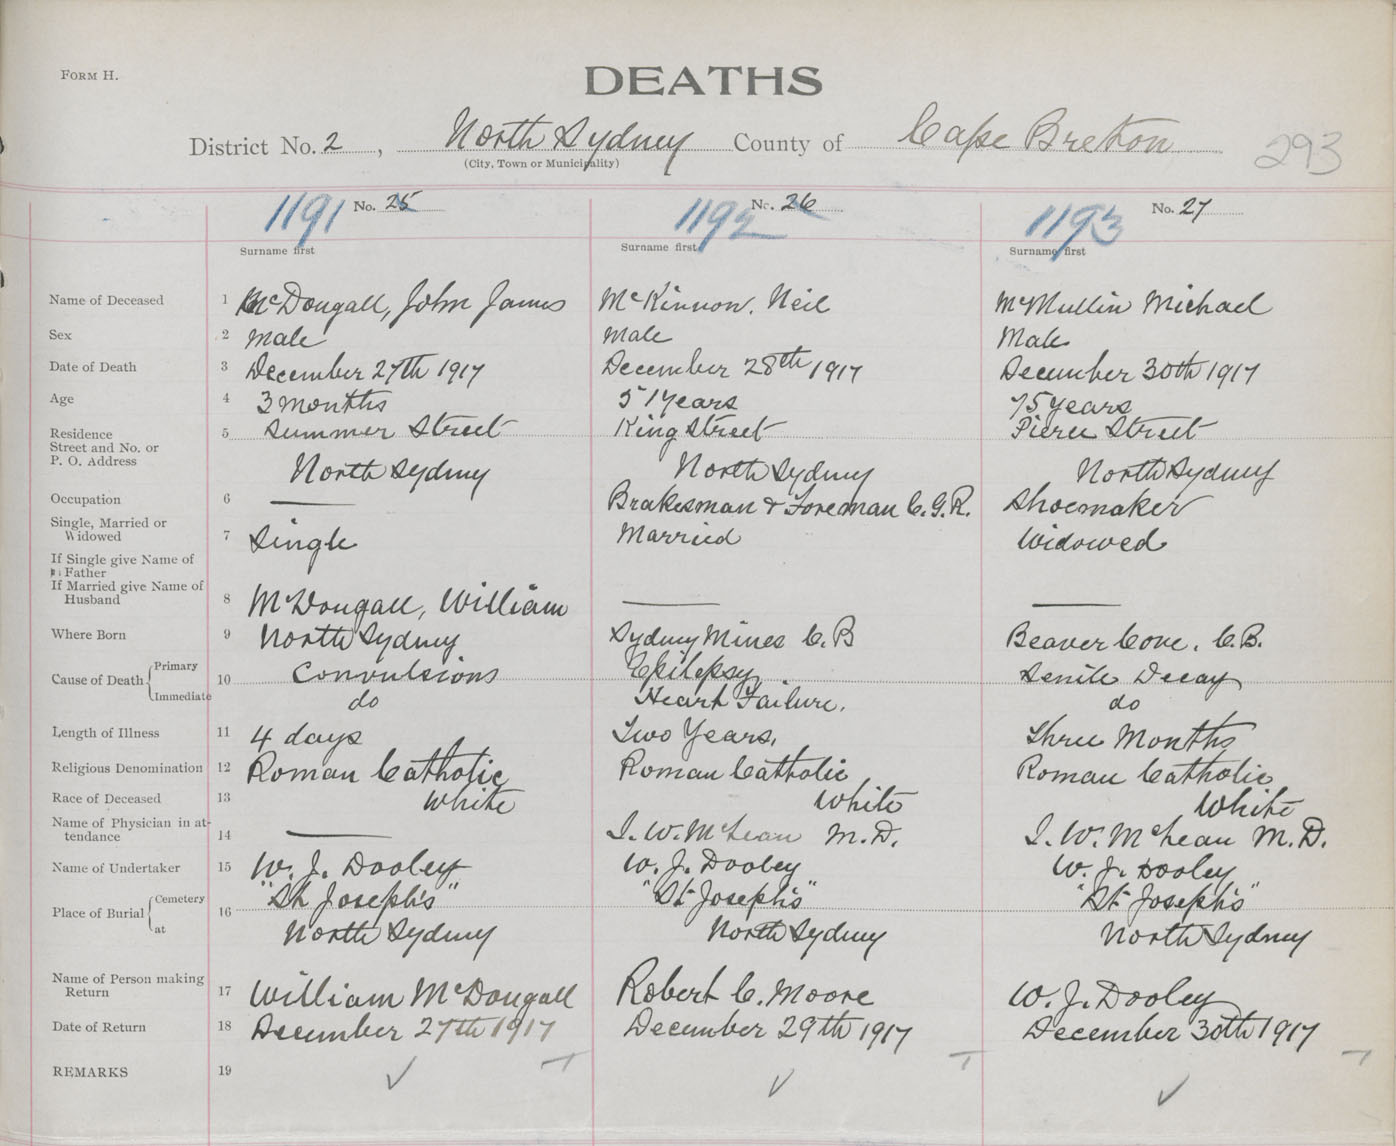 FORM H.
DEATHS
District No. 2, North Sydney County of Cape Breton
(City, Town or Municipality)
293
1191 No. 25 1192 No. 26 1193 No. 27
Surname first Surname first Surname first
Name of Deceased 1 McDougall, John James McKinnon, Neil McMullin Michael
Sex 2 Male Male Male
Date of Death 3 December 27th 1917 December 28th 1917 December 30th 1917
Age 4 3 months 51 years 75 years
Residence 5 Summer Street King Street Pierce Street
Street and No. or
P. O. Address North Sydney North Sydney North Sydney
Occupation 6 — Brakesman & Foreman C.G.R. Shoemaker
Single, Married or
Widowed 7 Single Married Widowed
If Single give Name of
Father
If Married give Name of
Husband 8 McDougall, William — —
Where Born 9 North Sydney Sydney Mines C.B Beaver Cove, C.B.
Cause of Death Primary 10 Convulsions Epilepsy. Senile Decay
Immediate do Heart Failure. do
Length of Illness 11 4 days Two Years. Three Months
Religious Denomination 12 Roman Catholic Roman Catholic Roman Catholic
Race of Deceased 13 White White White
Name of Physician in at-
tendance 14 — J. W. McLean M.D. J. W. McLean M.D.
Name of Undertaker 15 W. J. Dooley W. J. Dooley W. J. Dooley
Place of Burial Cemetery 16 "St Joseph's" "St Joseph's" "St Joseph's"
at North Sydney North Sydney North Sydney
Name of Person making
Return 17 William McDougall Robert C. Moore W. J. Dooley
Date of Return 18 December 27th 1917 December 29th 1917 December 30th 1917
REMARKS 19 ✓ ✓ ✓